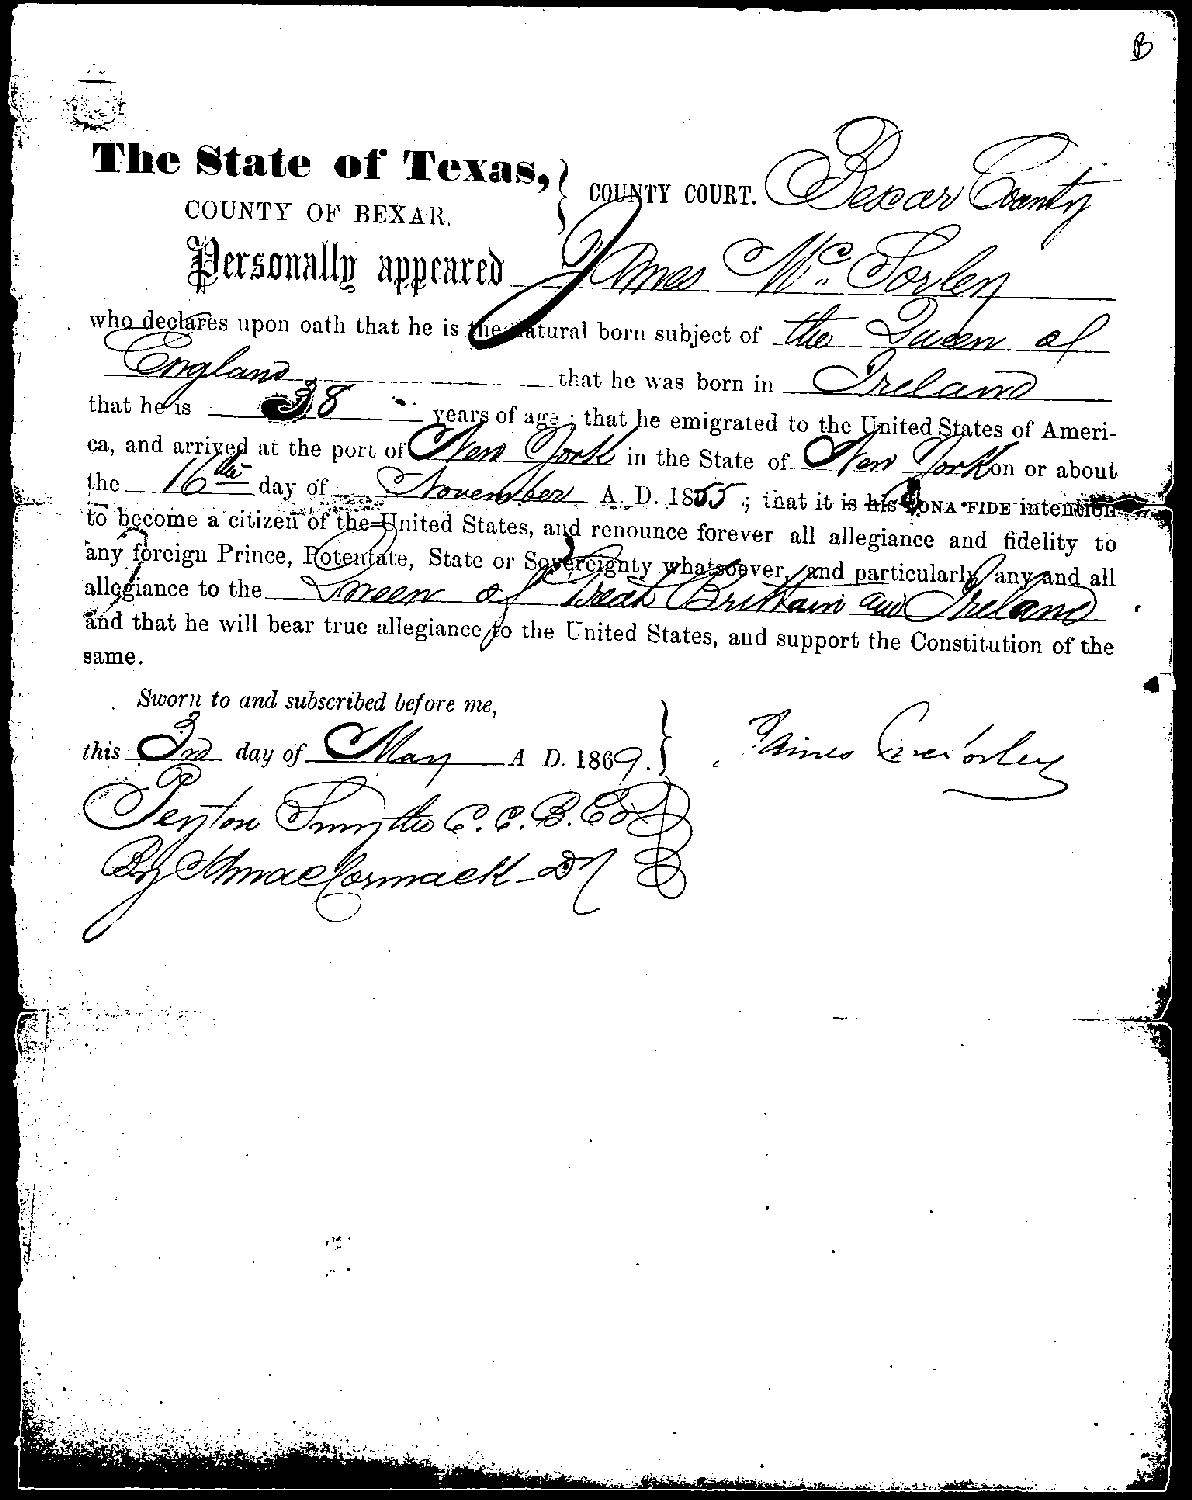 B
The State of Texas, } COUNTY COURT. Bexar County
COUNTY OF BEXAR.
Personally appeared James Mc. Sorley
who declares upon oath that he is the natural born subject of the Queen of
England that he was born in Ireland
that he is 38 years of age; that he emigrated to the United States of Ameri-
ca, and arrived at the port of New York in the State of New York on or about
the 16th day of November A. D. 1855; that it is his BONA FIDE intention
to become a citizen of the United States, and renounce forever all allegiance and fidelity to
any foreign Prince, Potentate, State or Sovereignty whatsoever, and particularly any and all
allegiance to the Queen of Great Brittain and Ireland
and that he will bear true allegiance to the United States, and support the Constitution of the
same.
Sworn to and subscribed before me,
this 3rd day of May A D. 1869. } James McSorley
Peyton Smythe C. C. B. Co
By MacCormack Dy